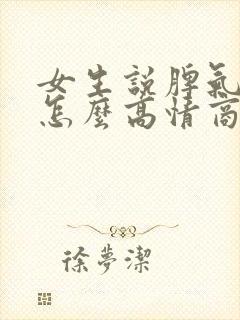 女生說脾氣
怎麼高情商
徐夢潔